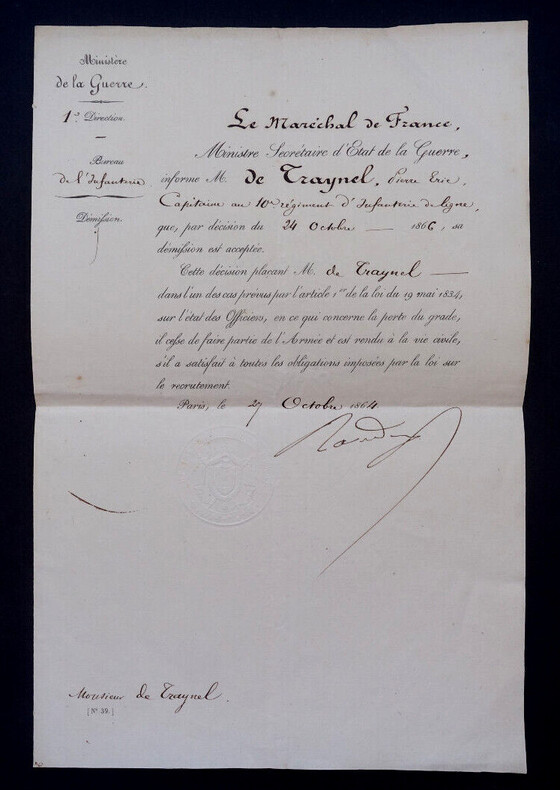 Ministère
de la Guerre.
1re Direction.
Bureau
de l'Infanterie
Démission.
Le Maréchal de France,
Ministre Secrétaire d'Etat de la Guerre,
informe M. de Traynel, Pierre Eric,
Capitaine au 10e régiment d'Infanterie de ligne,
que, par décision du 24 Octobre — 1866, sa
démission est acceptée.
Cette décision plaçant M. de Traynel —
dans l'un des cas prévus par l'article 1er de la loi du 19 mai 1834,
sur l'état des Officiers, en ce qui concerne la perte du grade,
il cesse de faire partie de l'Armée et est rendu à la vie civile,
s'il a satisfait à toutes les obligations imposées par la loi sur
le recrutement.
Paris, le 27 Octobre 1864
Monsieur de Traynel.
[No 32.]